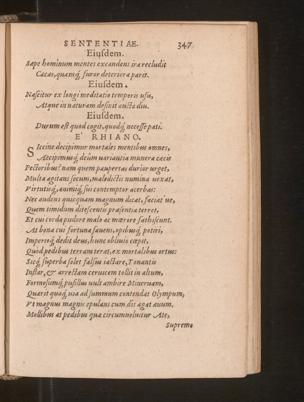 SENTENTIAE. 347
Eiusdem.
Sæpe hominum mentes excandens ira recludit
Cæcas, quamq́; furor deteriora parit.
Eiusdem.
Nascitur ex longi meditatio temporis usu,
Atque in naturam desinit aucta diu.
Eiusdem.
Durum est quod cogit, quodq́; necesse pati.
E' RHIANO.
Siccine decipimur mortales mentibus omnes,
Accipimusq́; deûm uariantia munera cæcis
Pectoribus? nam quem paupertas durior urget,
Multa agitans secum, maledictis numina uexat,
Virtutisq́, animiq́; sui contemptor acerbus:
Nec audens quicquam magnum dicat, faciat ue,
Quem timidum ditescentis præsentia terret,
Et cui corda pudore malo ac mœrore fathiscunt.
At bona cui fortuna fauens, opibusq́; potiri,
Imperioq́; dedit deus, hunc obliuio cœpit,
Quod pedibus terram terat, ex mortalibus ortus:
Sicq́; superba solet falsus iactare, Tonantis
Instar, & arrectam ceruicem tollit in altum,
Formosumq́; pusillus uult ambire Mineruam,
Quærit quaq́; uia ad summum contendat Olympum,
Vt magnus magnis epulans cum dis agat æuum,
Mollibus at pedibus quæ circumuoluitur Ate,
Supremo